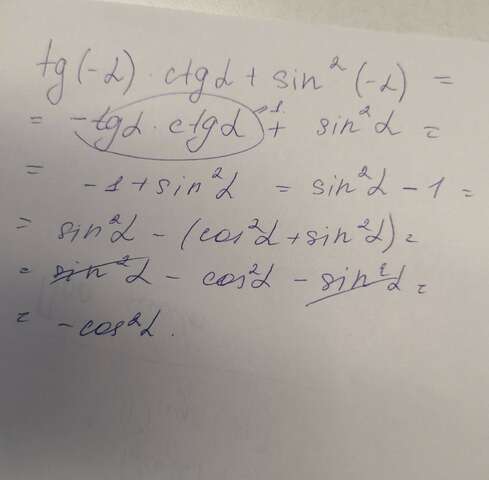 tg(-α) · ctgα + sin²(-α) =
= -tgα · ctgα ¹ + sin²α =
= -1 + sin²α = sin²α - 1 =
= sin²α - (cos²α + sin²α) =
= sin²α - cos²α - sin²α =
= -cos²α.